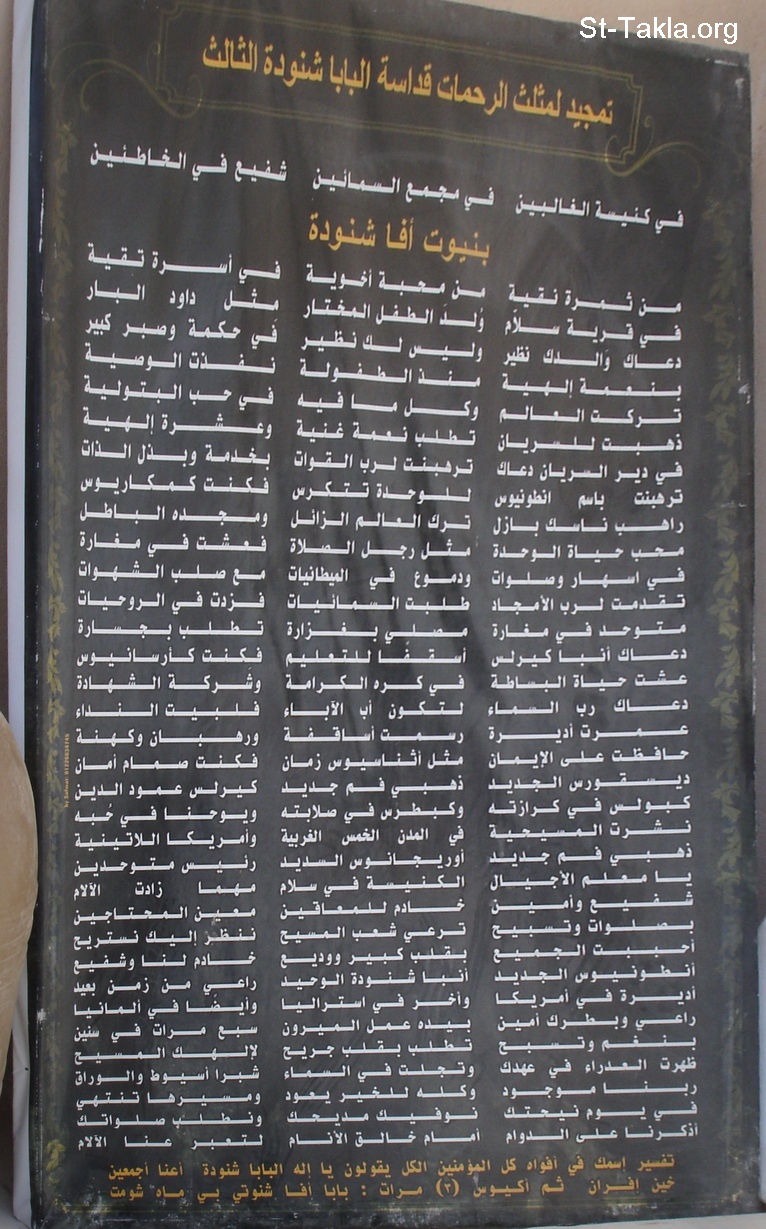 St-Takla.org
تمجيد لمثلث الرحمات قداسة البابا شنودة الثالث
في كنيسة الغالبين في مجمع السمائين شفيع في الخاطئين
بنيوت أفا شنودة
من ثمرة نقية من محبة أخوية في أسرة تقية
في قرية سلام ولد الطفل المختار مثل داود البار
دعاك والدك نظير وليس لك نظير في حكمة وصبر كبير
بنعمة إلهية منذ الطفولة نفذت الوصية
تركت العالم وكل ما فيه في حب البتولية
ذهبت للسريان تطلب نعمة غنية وعشرة إلهية
في دير السريان دعاك ترهبنت لرب القوات بخدمة وبذل الذات
ترهبنت باسم انطونيوس للوحدة تتكرس فكنت كمكاريوس
راهب ناسك بازل ترك العالم الزائل ومجده الباطل
محب حياة الوحدة مثل رجل الصلاة فعشت في مغارة
في اسهار وصلوات ودموع في الميطانيات مع صلب الشهوات
تقدمت لرب الأمجاد طلبت السمائيات فزدت في الروحيات
متوحد في مغارة مصلي بغزارة تطلب بجسارة
دعاك أنبا كيرلس أسقفا للتعليم فكنت كأرسانيوس
عشت حياة البساطة في كره الكرامة وشركة الشهادة
دعاك رب السماء لتكون أب الأباء فلبيت النداء
عمرت أديرة رسمت أساقفة ورهبان وكهنة
حافظت على الإيمان مثل أثناسيوس زمان فكنت صمام أمان
ديسقورس الجديد ذهبي فم جديد كيرلس عمود الدين
كبولس في كرازته وكبطرس في صلابته ويوحنا في حُبه
نشرت المسيحية في المدن الخمس الغربية وأمريكا اللاتينية
ذهبي فم جديد أوريجانوس السديد رئيس متوحدين
يا معلم الأجيال الكنيسة في سلام مهما زادت الآلام
شفيع وأمين خادم للمعاقين معين المحتاجين
بصلوات وتسبيح ترعي شعب المسيح ننظر إليك نستريح
أحببت الجميع بقلب كبير ووديع خادم لنا وشفيع
أنطونيوس الجديد أنبا شنودة الوحيد راعي من زمن بعيد
أديرة في أمريكا وأخر في استراليا وأيضًا في ألمانيا
راعي وبطرك أمين بيده عمل الميرون سبع مرات في سنين
بنغم وتسبح تطلب بقلب جريح لإلهك المسيح
ظهرت العدراء في عهدك وتجلت في السماء شبرا أسيوط والوراق
ربنا موجود وكله للخير يعود ومسيرها تنتهي
في يوم نيحتك نوفيك مديحك ونطلب صلواتك
أذكرنا على الدوام أمام خالق الأنام لتعبر عنا الآلام
تفسير إسمك في أفواه كل المؤمنين الكل يقولون يا إله البابا شنودة أعنا أجمعين
خين إفران ثم أكيوس (٣) مرات : بابا أفا شنوتي بي ماه شومت